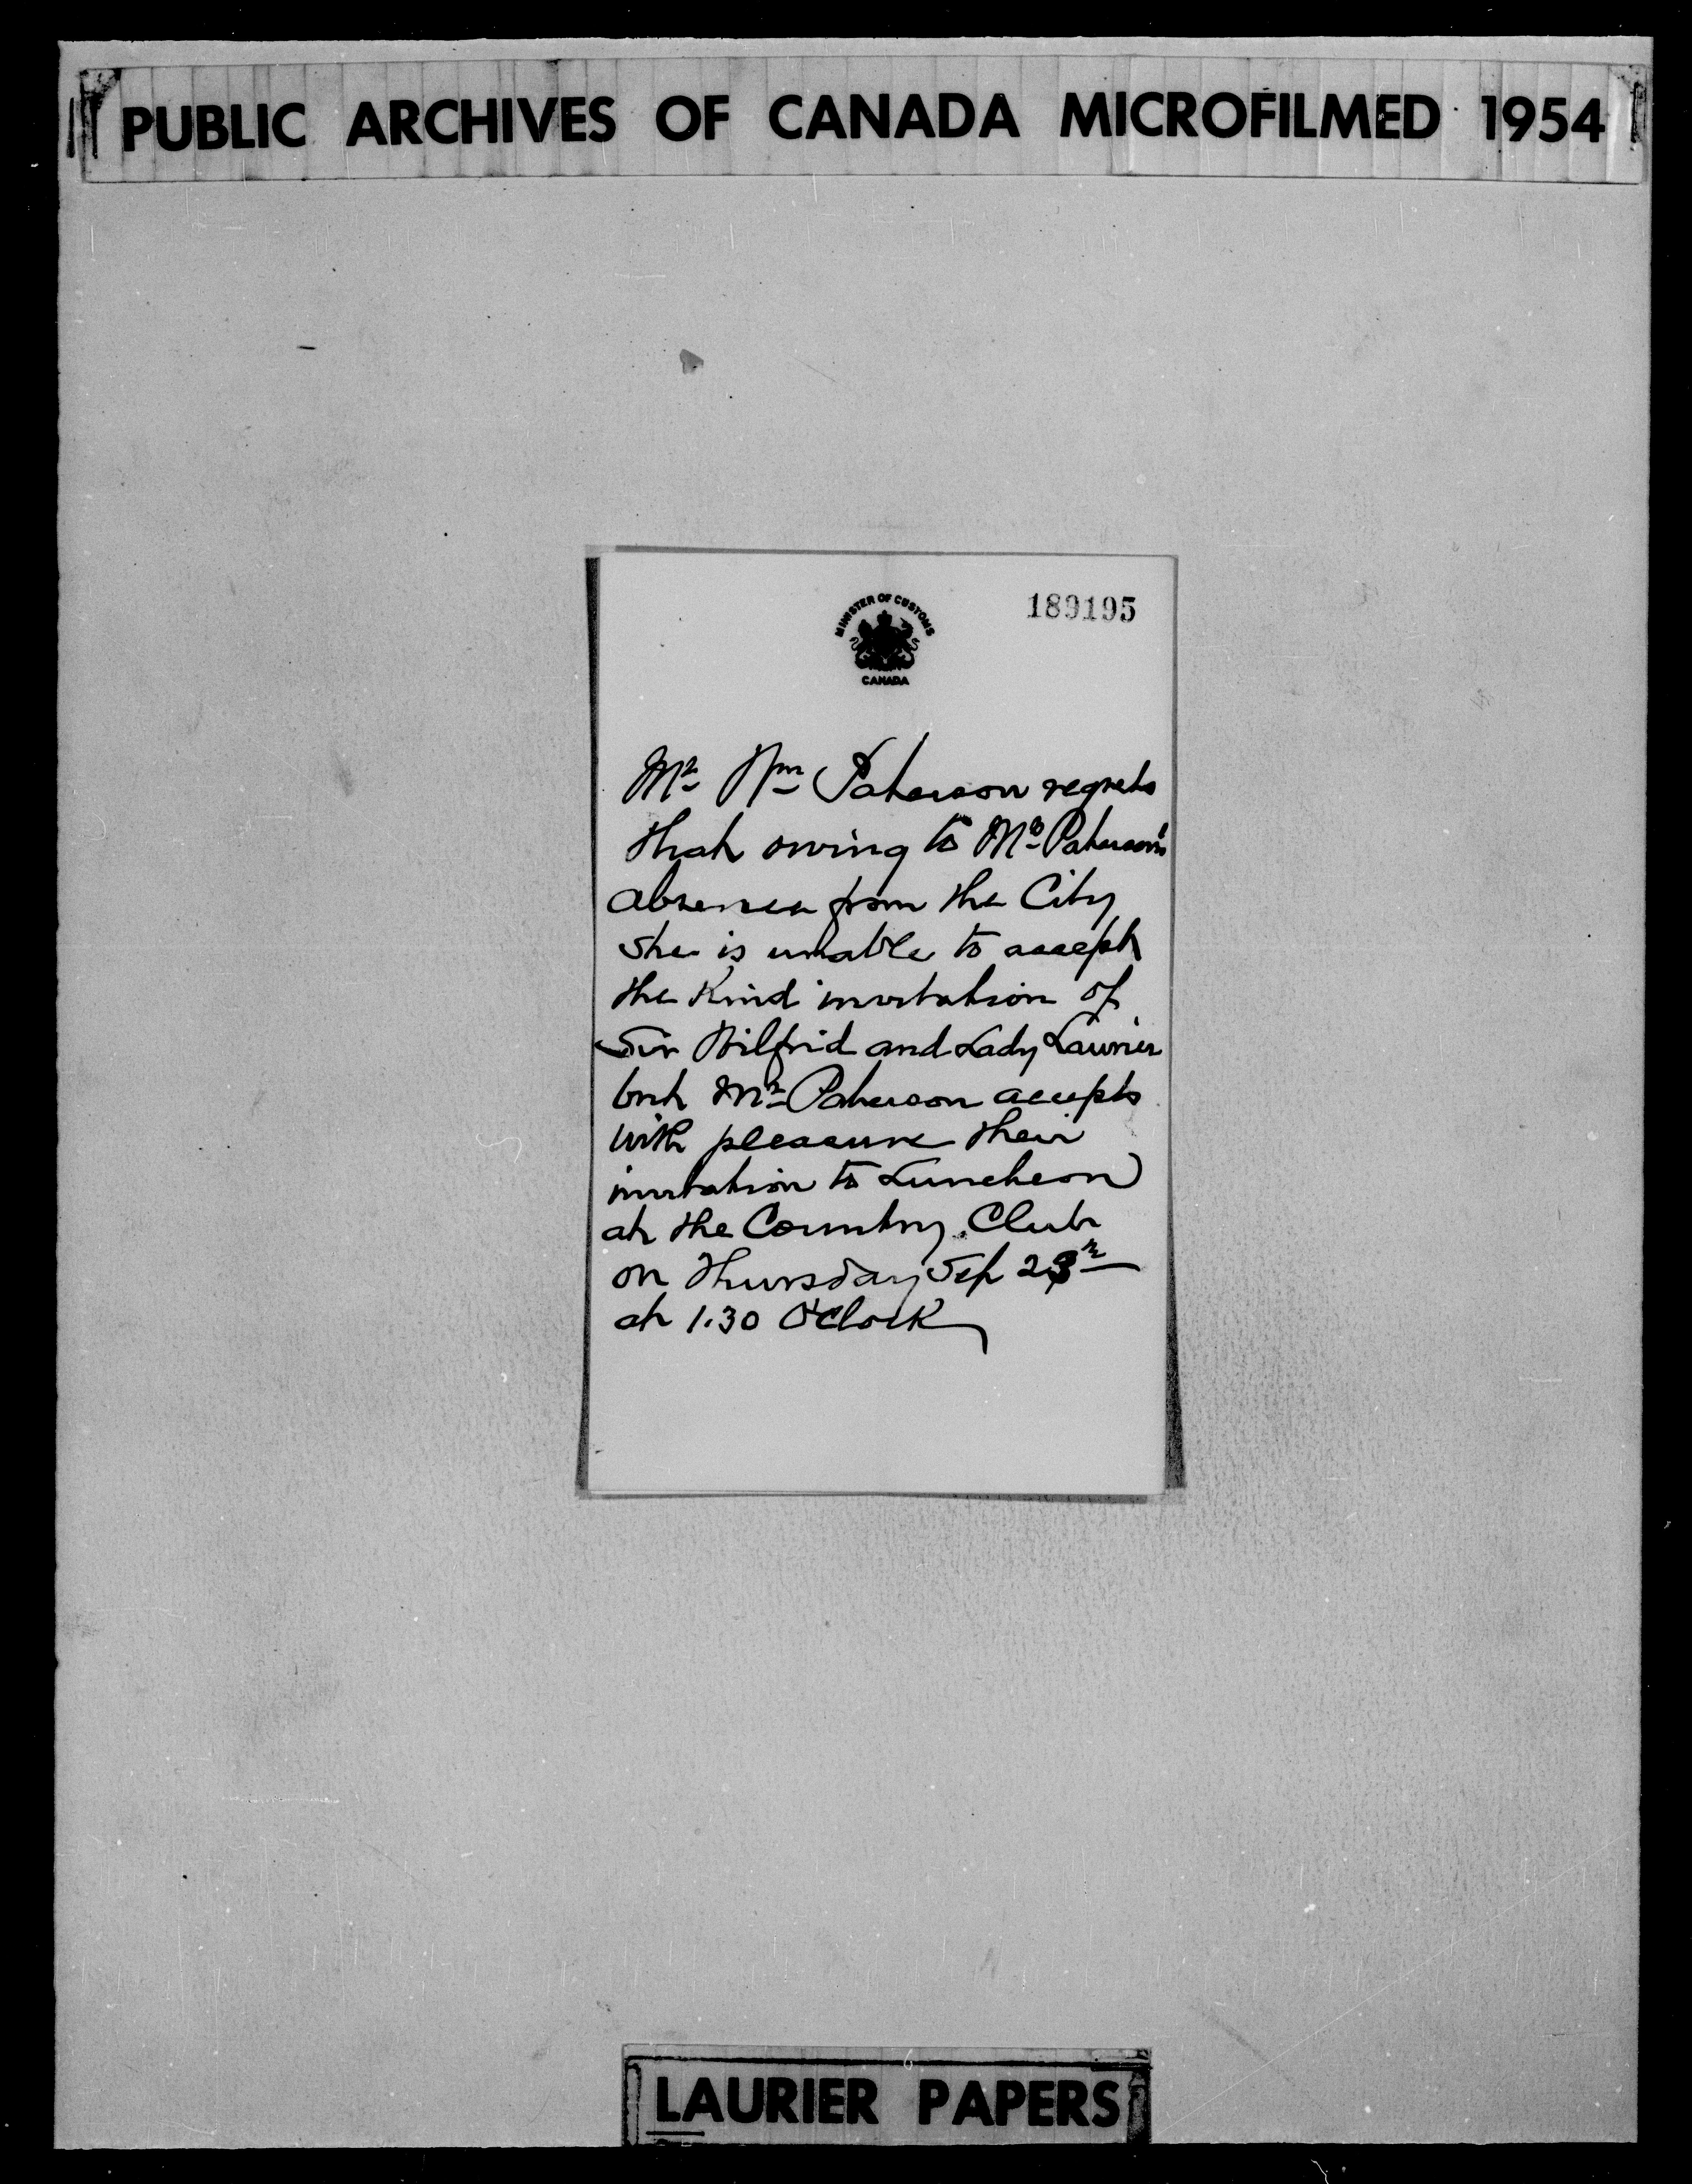 PUBLIC ARCHIVES OF CANADA MICROFILMED 1954
189195
MINISTER OF CUSTOMS
CANADA
Mr Wm Paterson regrets
that owing to Mrs Paterson's
absence from the City
she is unable to accept
the Kind invitation of
Sir Wilfrid and Lady Laurier
but Mr Paterson accepts
with pleasure their
invitation to Luncheon
at the Country Club
on Thursday Sep 23rd
at 1.30 O'Clock
LAURIER PAPERS